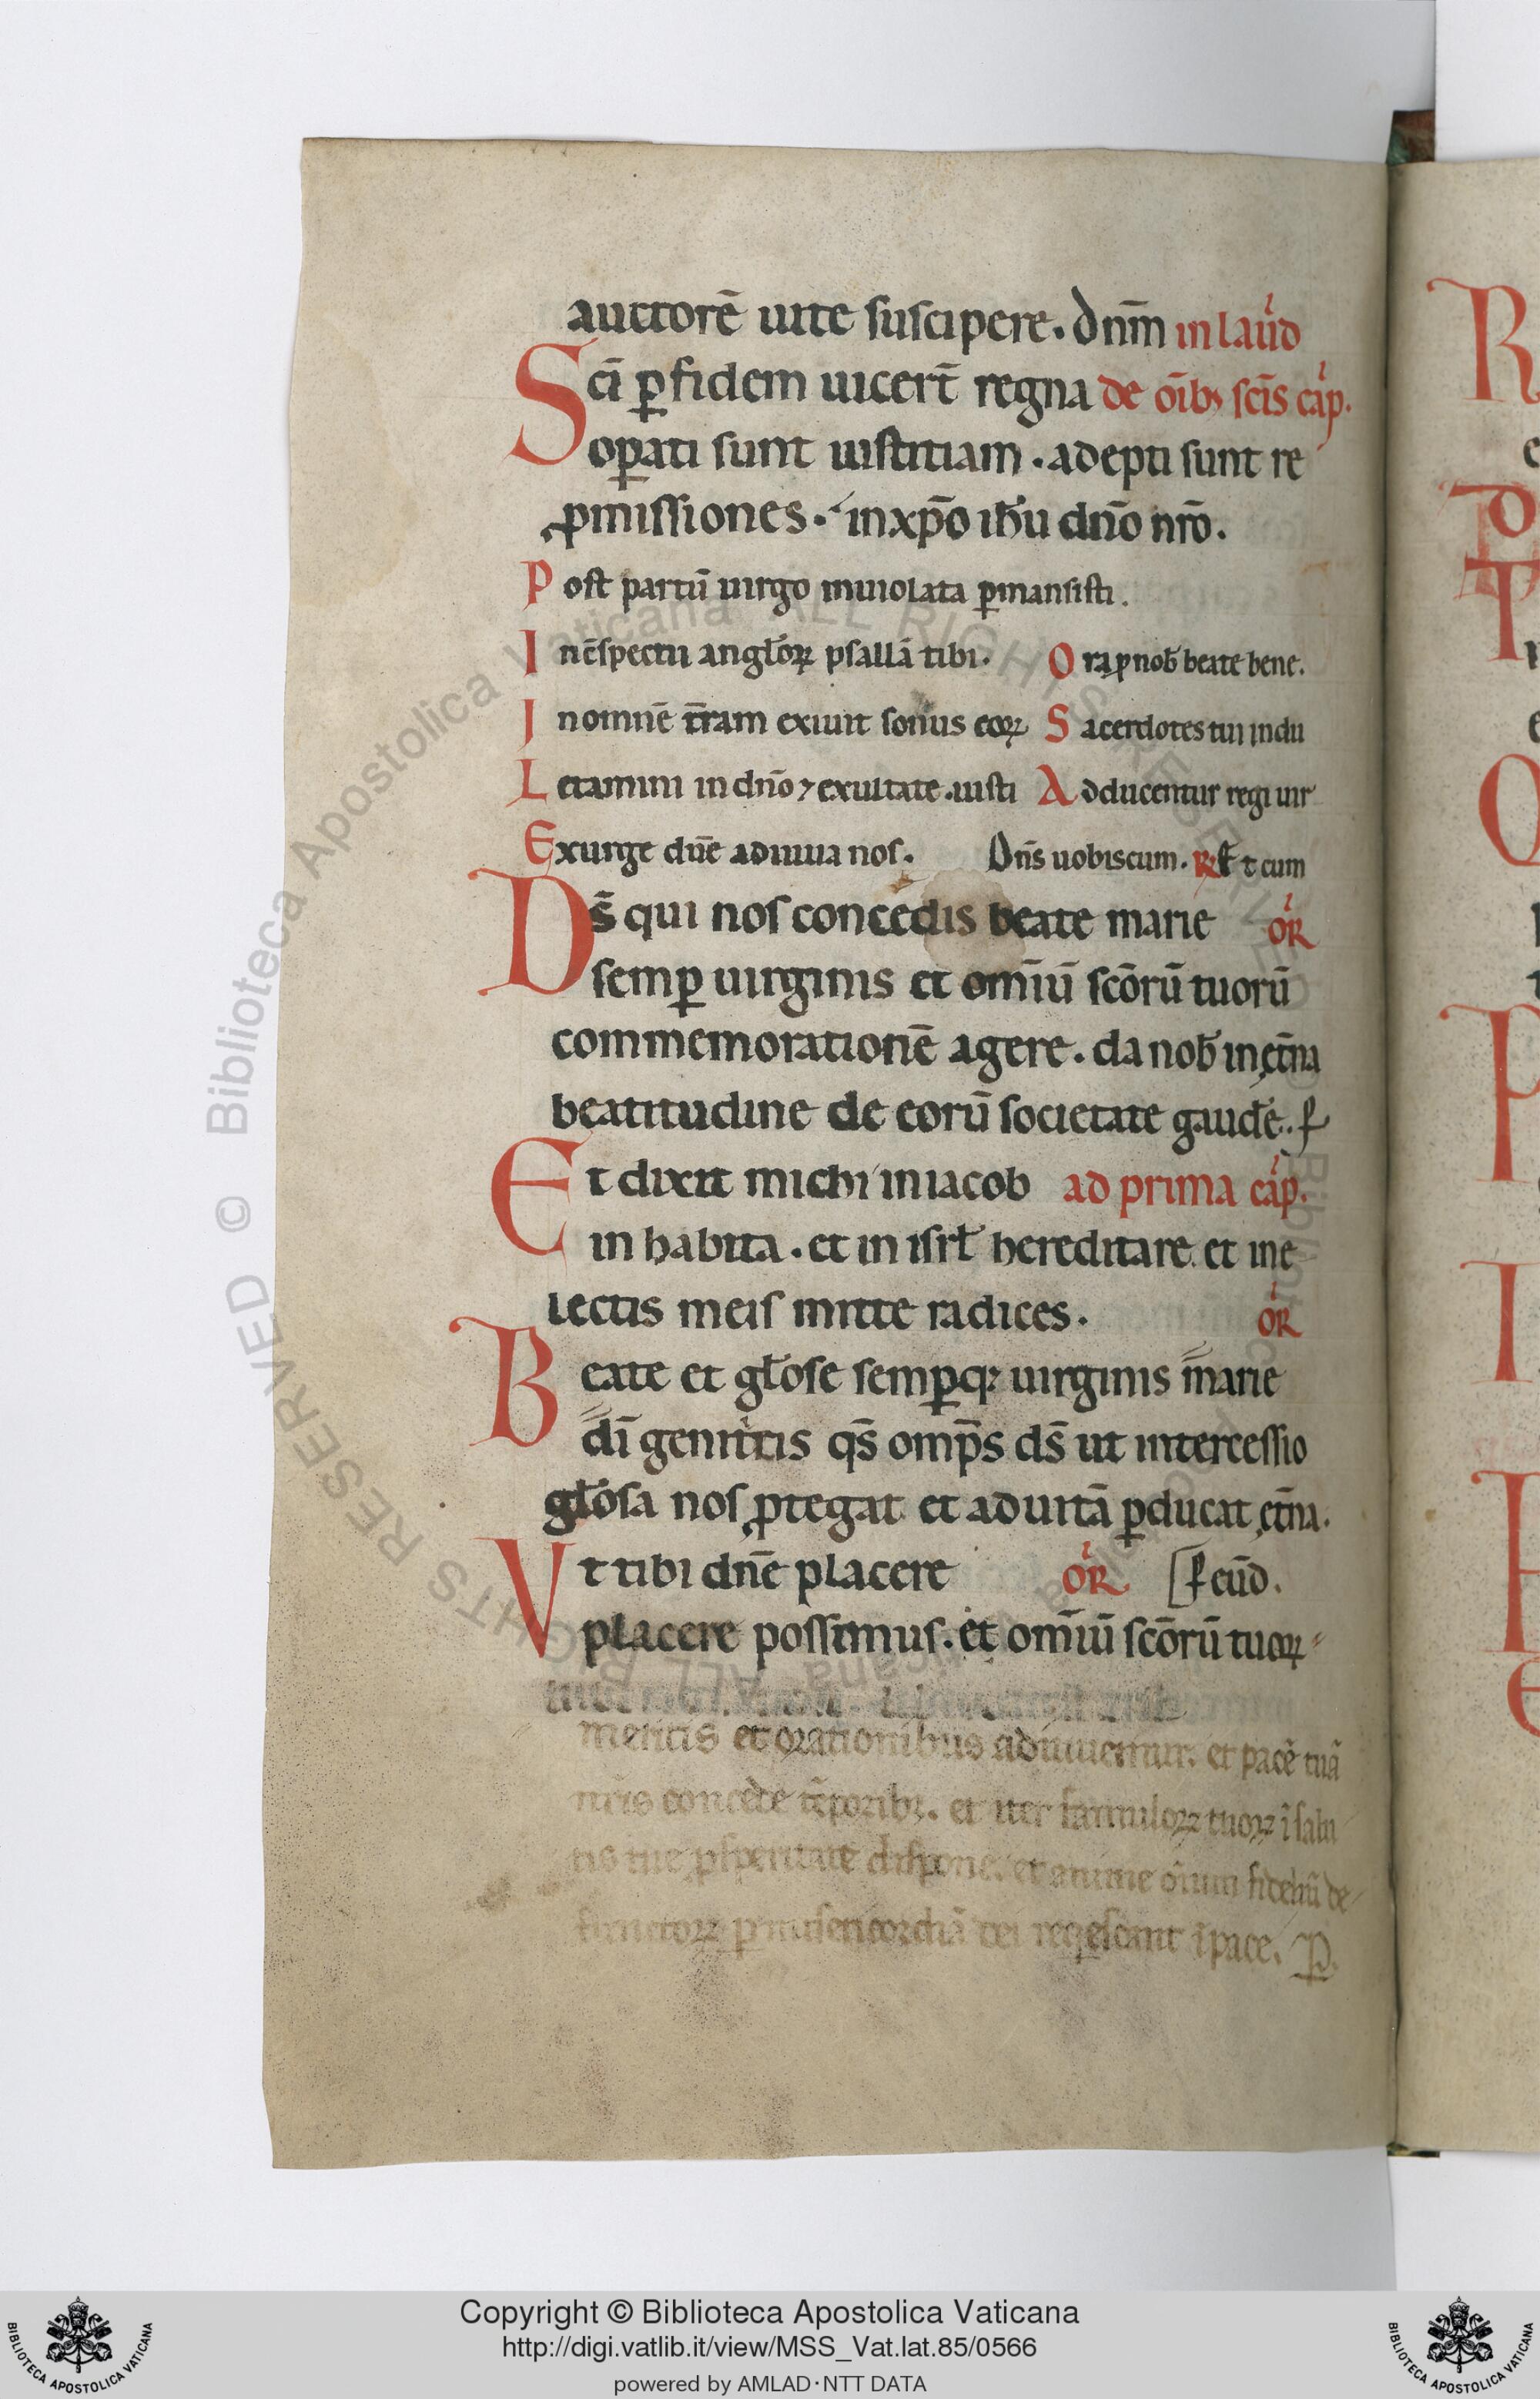 auctorē uite suscipere. dnm̄ in laúd
Scī ꝑ fidem uicert̄ regna de oīb; scīs cáp.
oꝑati sunt iustitiam. adepti sunt re
ꝓmissiones. in xp̄o ihū dnō nrō.
Post partū uirgo inuiolata ꝑmansisti.
In c̄spectu anglorꝝ psallā tibi. Ora ꝓ nob̄ beate bene.
In omnē tr̄ram exiuit sonus eoꝝ Sacerdotes tui indu
Letamini in dnō ⁊ exultate iusti Adducentur regi uir
Exurge dnē adiuua nos. Dn̄s uobiscum. ℟ Et cum
Ds̄ qui nos concedis beate marie óR
semꝑ uirginis et omīū scōrū tuorū
commemorationē agere. da nob̄ in ęt̄na
beatitudine de eorū societate gaudē. ꝑ
Et dixit michi in iacob ad prima cáp.
in habita. et in isrł hereditare. et in e
lectis meis mitte radices. óR
Beate et głose semꝑqꝫ uirginis marie
dī genitcis qs̄ omp̄s ds̄ ut intercessio
głosa nos ꝓtegat et ad uitā ꝑducat ęt̄na.
Vt tibi dnē placere óR [ꝑ eūd.
placere possimus. et omīū scōrū tuoꝝ
meritis et orationibus adiuuemur. et pacē tuā
nr̄is concede tēporibꝫ. et iter famuloꝝ tuoꝝ ī salu
tis tue ꝓsperitate dispone. et anime oīum fidelıū de
functoꝝ ꝑ misericordiā dei reqescant ī pace. P.
© Biblioteca Apostolica Vaticana ALL RIGHTS RESERVED
Copyright © Biblioteca Apostolica Vaticana
http://digi.vatlib.it/view/MSS_Vat.lat.85/0566
powered by AMLAD·NTT DATA
BIBLIOTECA APOSTOLICA VATICANA
BIBLIOTECA APOSTOLICA VATICANA